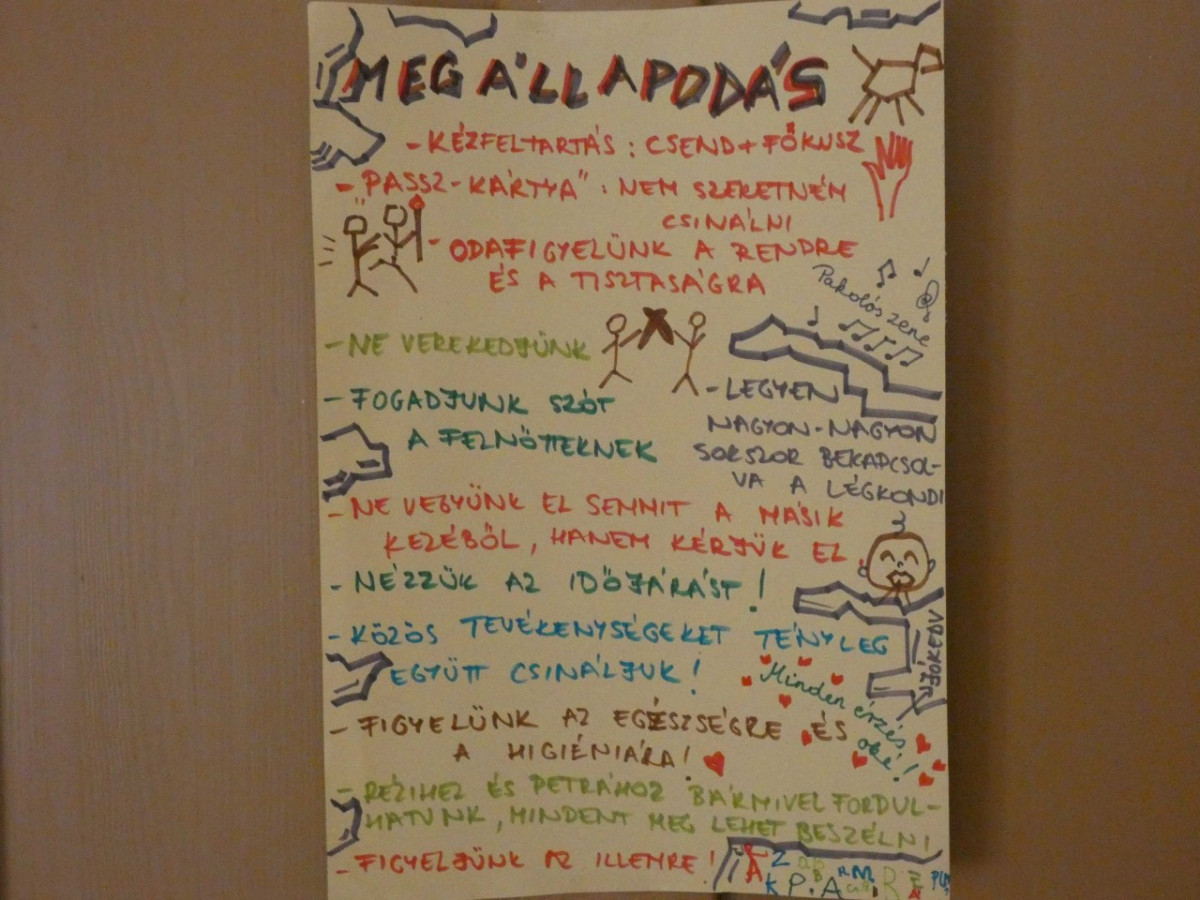 MEGÁLLAPODÁS
- KÉZFELTARTÁS: CSEND + FÓKUSZ
- "PASSZ-KÁRTYA": NEM SZERETNÉM
CSINÁLNI
- ODAFIGYELÜNK A RENDRE
ÉS A TISZTASÁGRA
Pakolós zene
- NE VEREKEDJÜNK
- FOGADJUNK SZÓT
A FELNŐTTEKNEK
- LEGYEN
NAGYON-NAGYON
SOKSZOR BEKAPCSOL-
VA A LÉGKONDI
- NE VEGYÜNK EL SEMMIT A MÁSIK
KEZÉBŐL, HANEM KÉRJÜK EL.
- NÉZZÜK AZ IDŐJÁRÁST!
- KÖZÖS TEVÉKENYSÉGEKET TÉNYLEG
EGYÜTT CSINÁLJUK!
JÓKEDV
Minden érzés
oké!
- FIGYELÜNK AZ EGÉSZSÉGRE ÉS
A HIGIÉNIÁRA!
- RÉZIHEZ ÉS PETRÁHOZ BÁRMIVEL FORDUL-
HATUNK, MINDENT MEG LEHET BESZÉLNI
- FIGYELJÜNK AZ ILLEMRE!